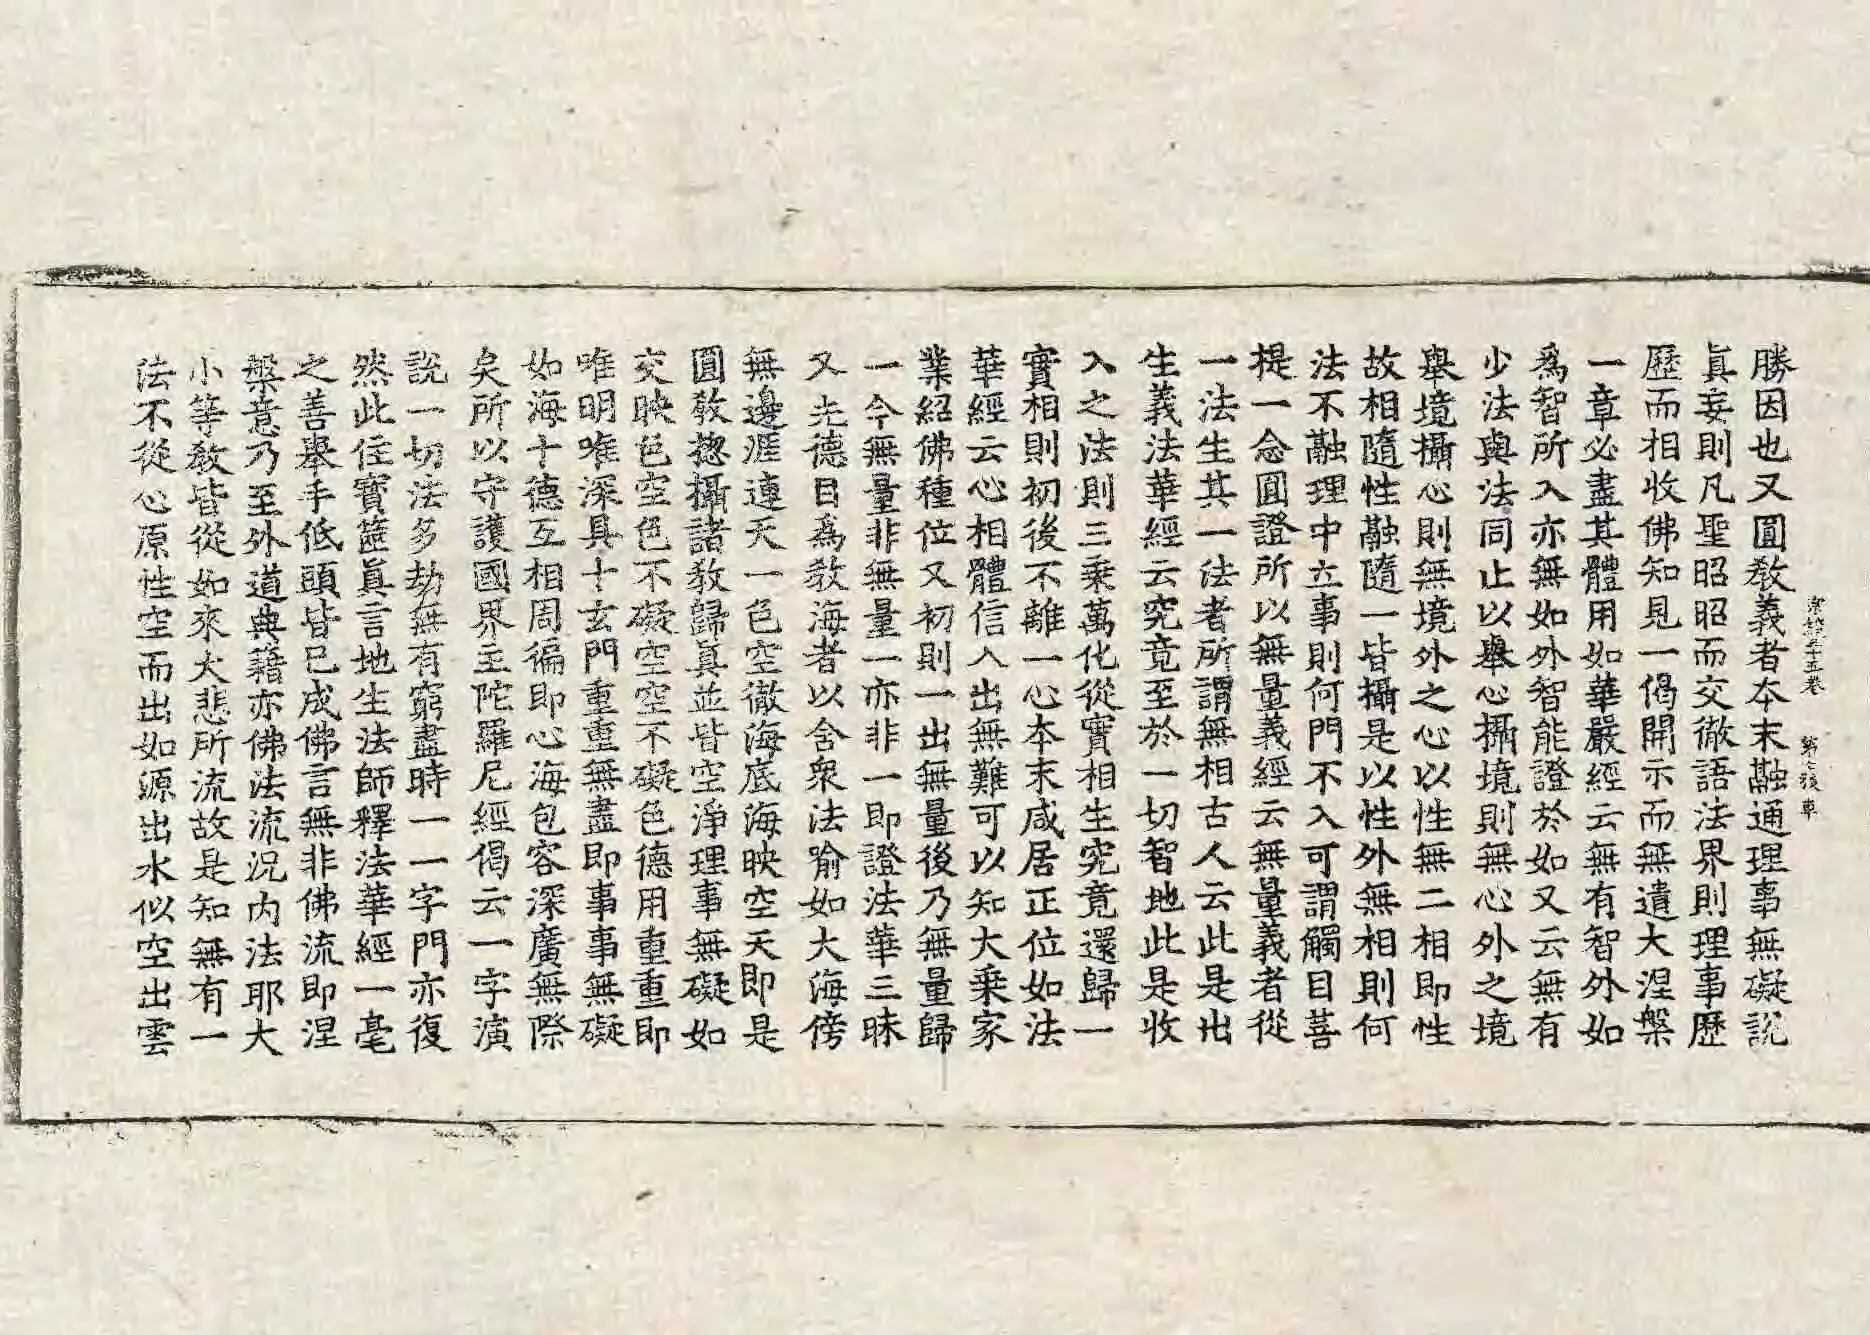 勝因也又圓敎義者夲末融通理事無礙說
眞妄則凡聖昭昭而交徹語法界則理事歷
歷而相收佛知見一偈開示而無遺大涅槃
一章必盡其體用如華嚴經云無有智外如
爲智所入亦無如外智能證於如又云無有
少法與法同止以舉心攝境則無心外之境
舉境攝心則無境外之心以性無二相即性
故相隨性融隨一皆攝是以性外無相則何
法不融理中立事則何門不入可謂觸目菩
提一念圓證所以無量義經云無量義者從
一法生其一法者所謂無相古人云此是出
生義法華經云究竟至於一切智地此是收
入之法則三乗萬化從實相生究竟還歸一
實相則初後不離一心夲末咸居正位如法
華經云心相體信入出無難可以知大乗家
業紹佛種位又初則一出無量後乃無量歸
一今無量非無量一亦非一即證法華三昧
又先德目爲敎海者以含衆法喻如大海傍
無邊涯連天一色空徹海底海映空天即是
圓敎揔攝諸敎歸眞並皆空淨理事無礙如
交映色空色不礙空空不礙色德用重重即
唯明唯深具十玄門重重無盡即事事無礙
如海十德互相周徧即心海包容深廣無際
矣所以守護國界主陀羅尼經偈云一字演
說一切法多劫無有窮盡時一一字門亦復
然此住寶篋眞言地生法師釋法華經一毫
之善舉手低頭皆已成佛言無非佛流即涅
槃意乃至外道典籍亦佛法流况内法耶大
小等敎皆從如來大悲所流故是知無有一
法不從心原性空而出如源出水似空出雲